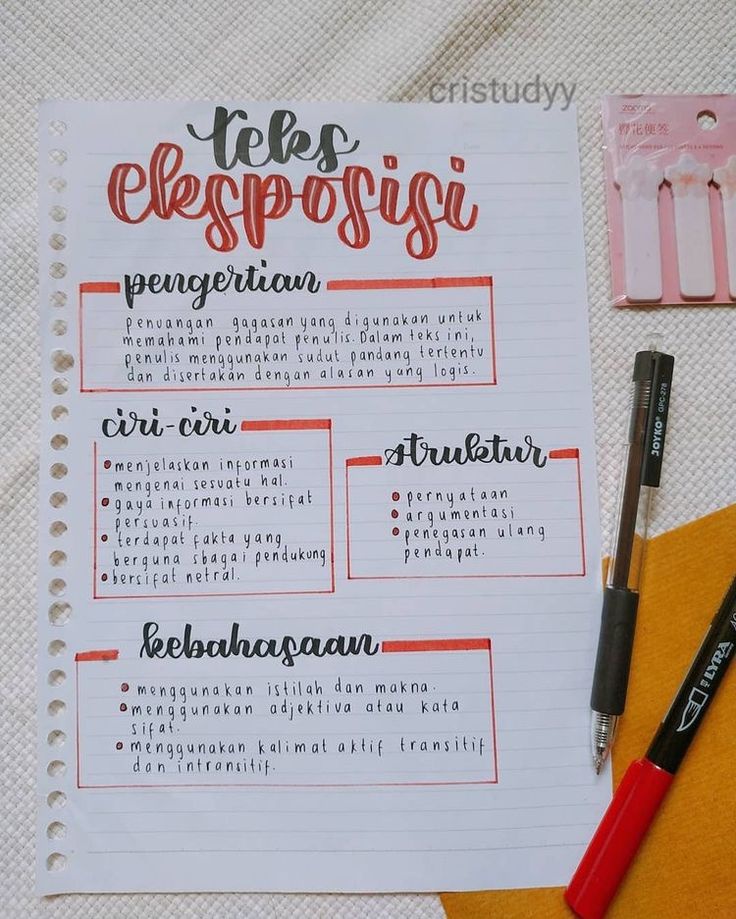 cristudyy
teks
eksposisi
pengertian
penuangan gagasan yang digunakan untuk
memahami pendapat penulis. Dalam teks ini,
penulis menggunakan sudut pandang tertentu
dan disertakan dengan alasan yang logis.
ciri-ciri
• menjelaskan informasi
mengenai sesuatu hal.
• gaya informasi bersifat
persuasif.
• terdapat fakta yang
berguna sbagai pendukung
• bersifat netral.
struktur
• pernyataan
• argumentasi
• penegasan ulang
pendapat.
kebahasaan
• menggunakan istilah dan makna.
• menggunakan adjektiva atau kata
sifat.
• menggunakan kalimat aktif transitif
dan intransitif.
樱花便签
JOYKO GPC-278
LYRA